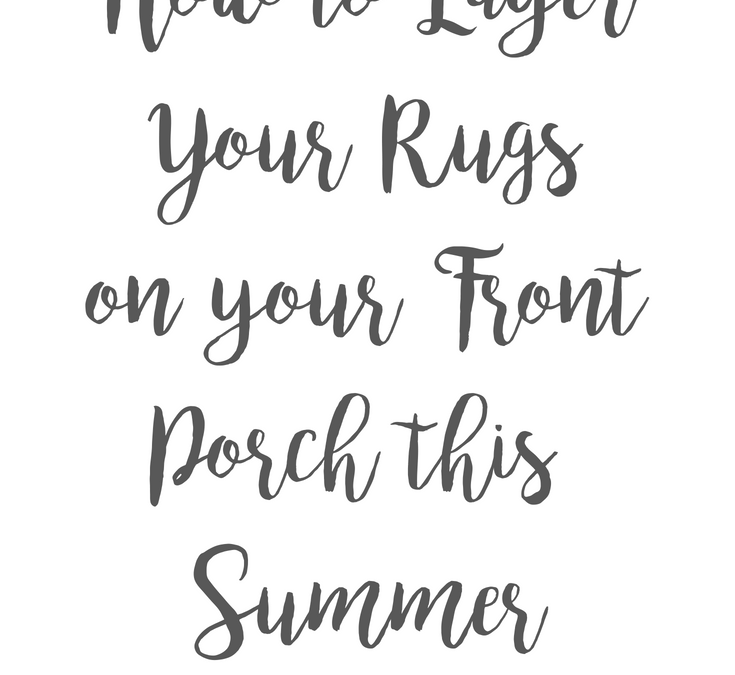 How to Layer
Your Rugs
on your Front
Porch this
Summer